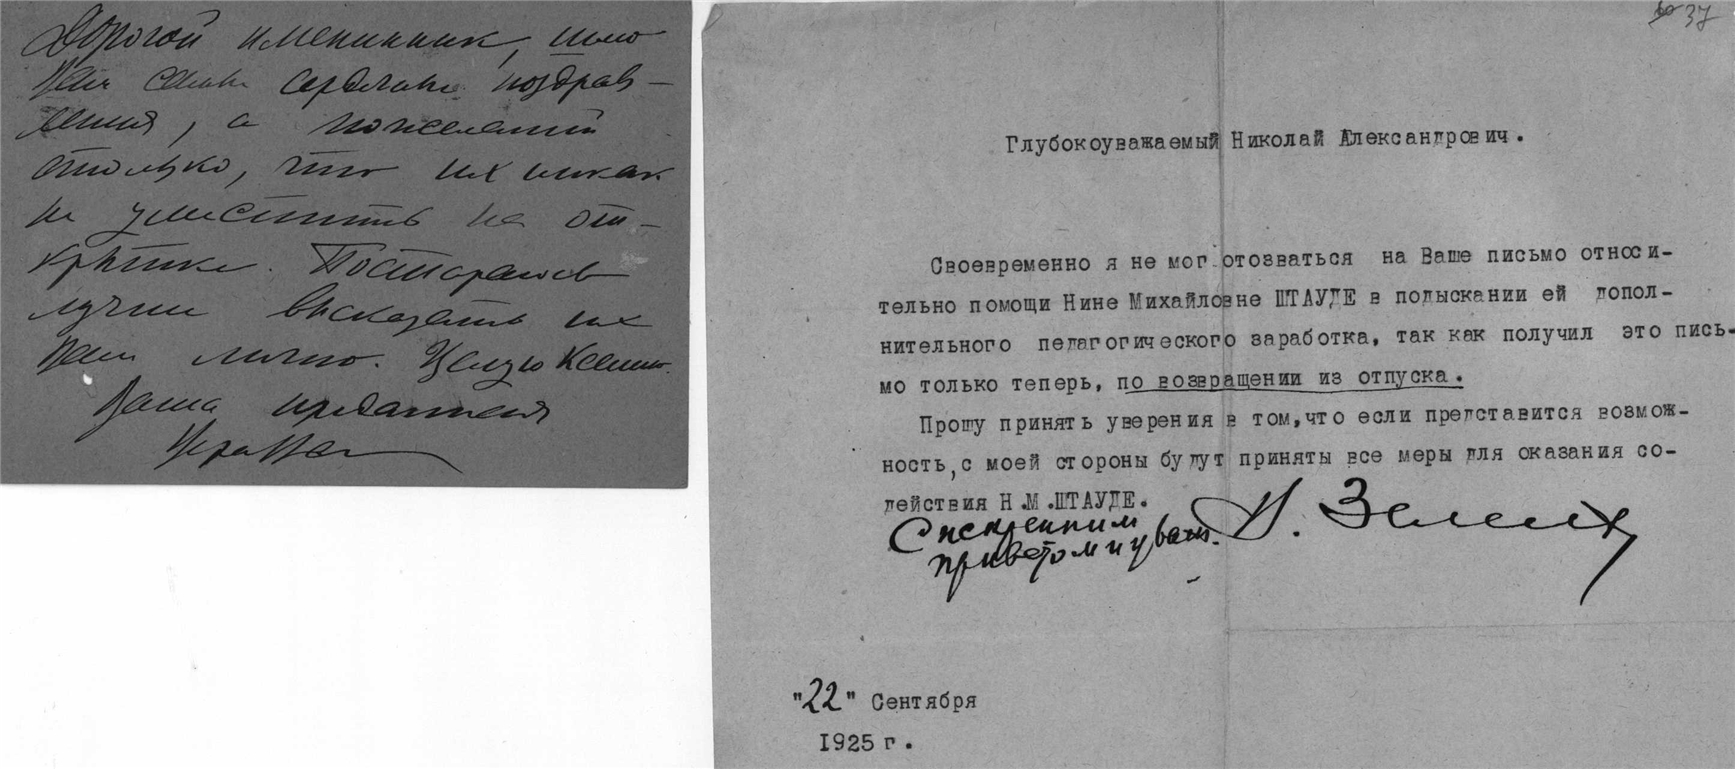 Дорогой именинник, шлю
Вам самые сердечные поздрав-
ления, а пожеланий
столько, что их никак
не уместить на от-
крытке. Постараюсь
лучше высказать их
Вам лично. Целую Ксению.
Ваша преданная
37
Глубокоуважаемый Николай Александрович.
Своевременно я не мог отозваться на Ваше письмо относи-
тельно помощи Нине Михайловне ШТАУДЕ в подыскании ей допол-
нительного педагогического заработка, так как получил это пись-
мо только теперь, по возвращении из отпуска.
Прошу принять уверения в том, что если представится возмож-
ность, с моей стороны будут приняты все меры для оказания со-
действия Н.М.ШТАУДЕ.
С искренним
приветом и уваж.
"22" Сентября
1925 г.